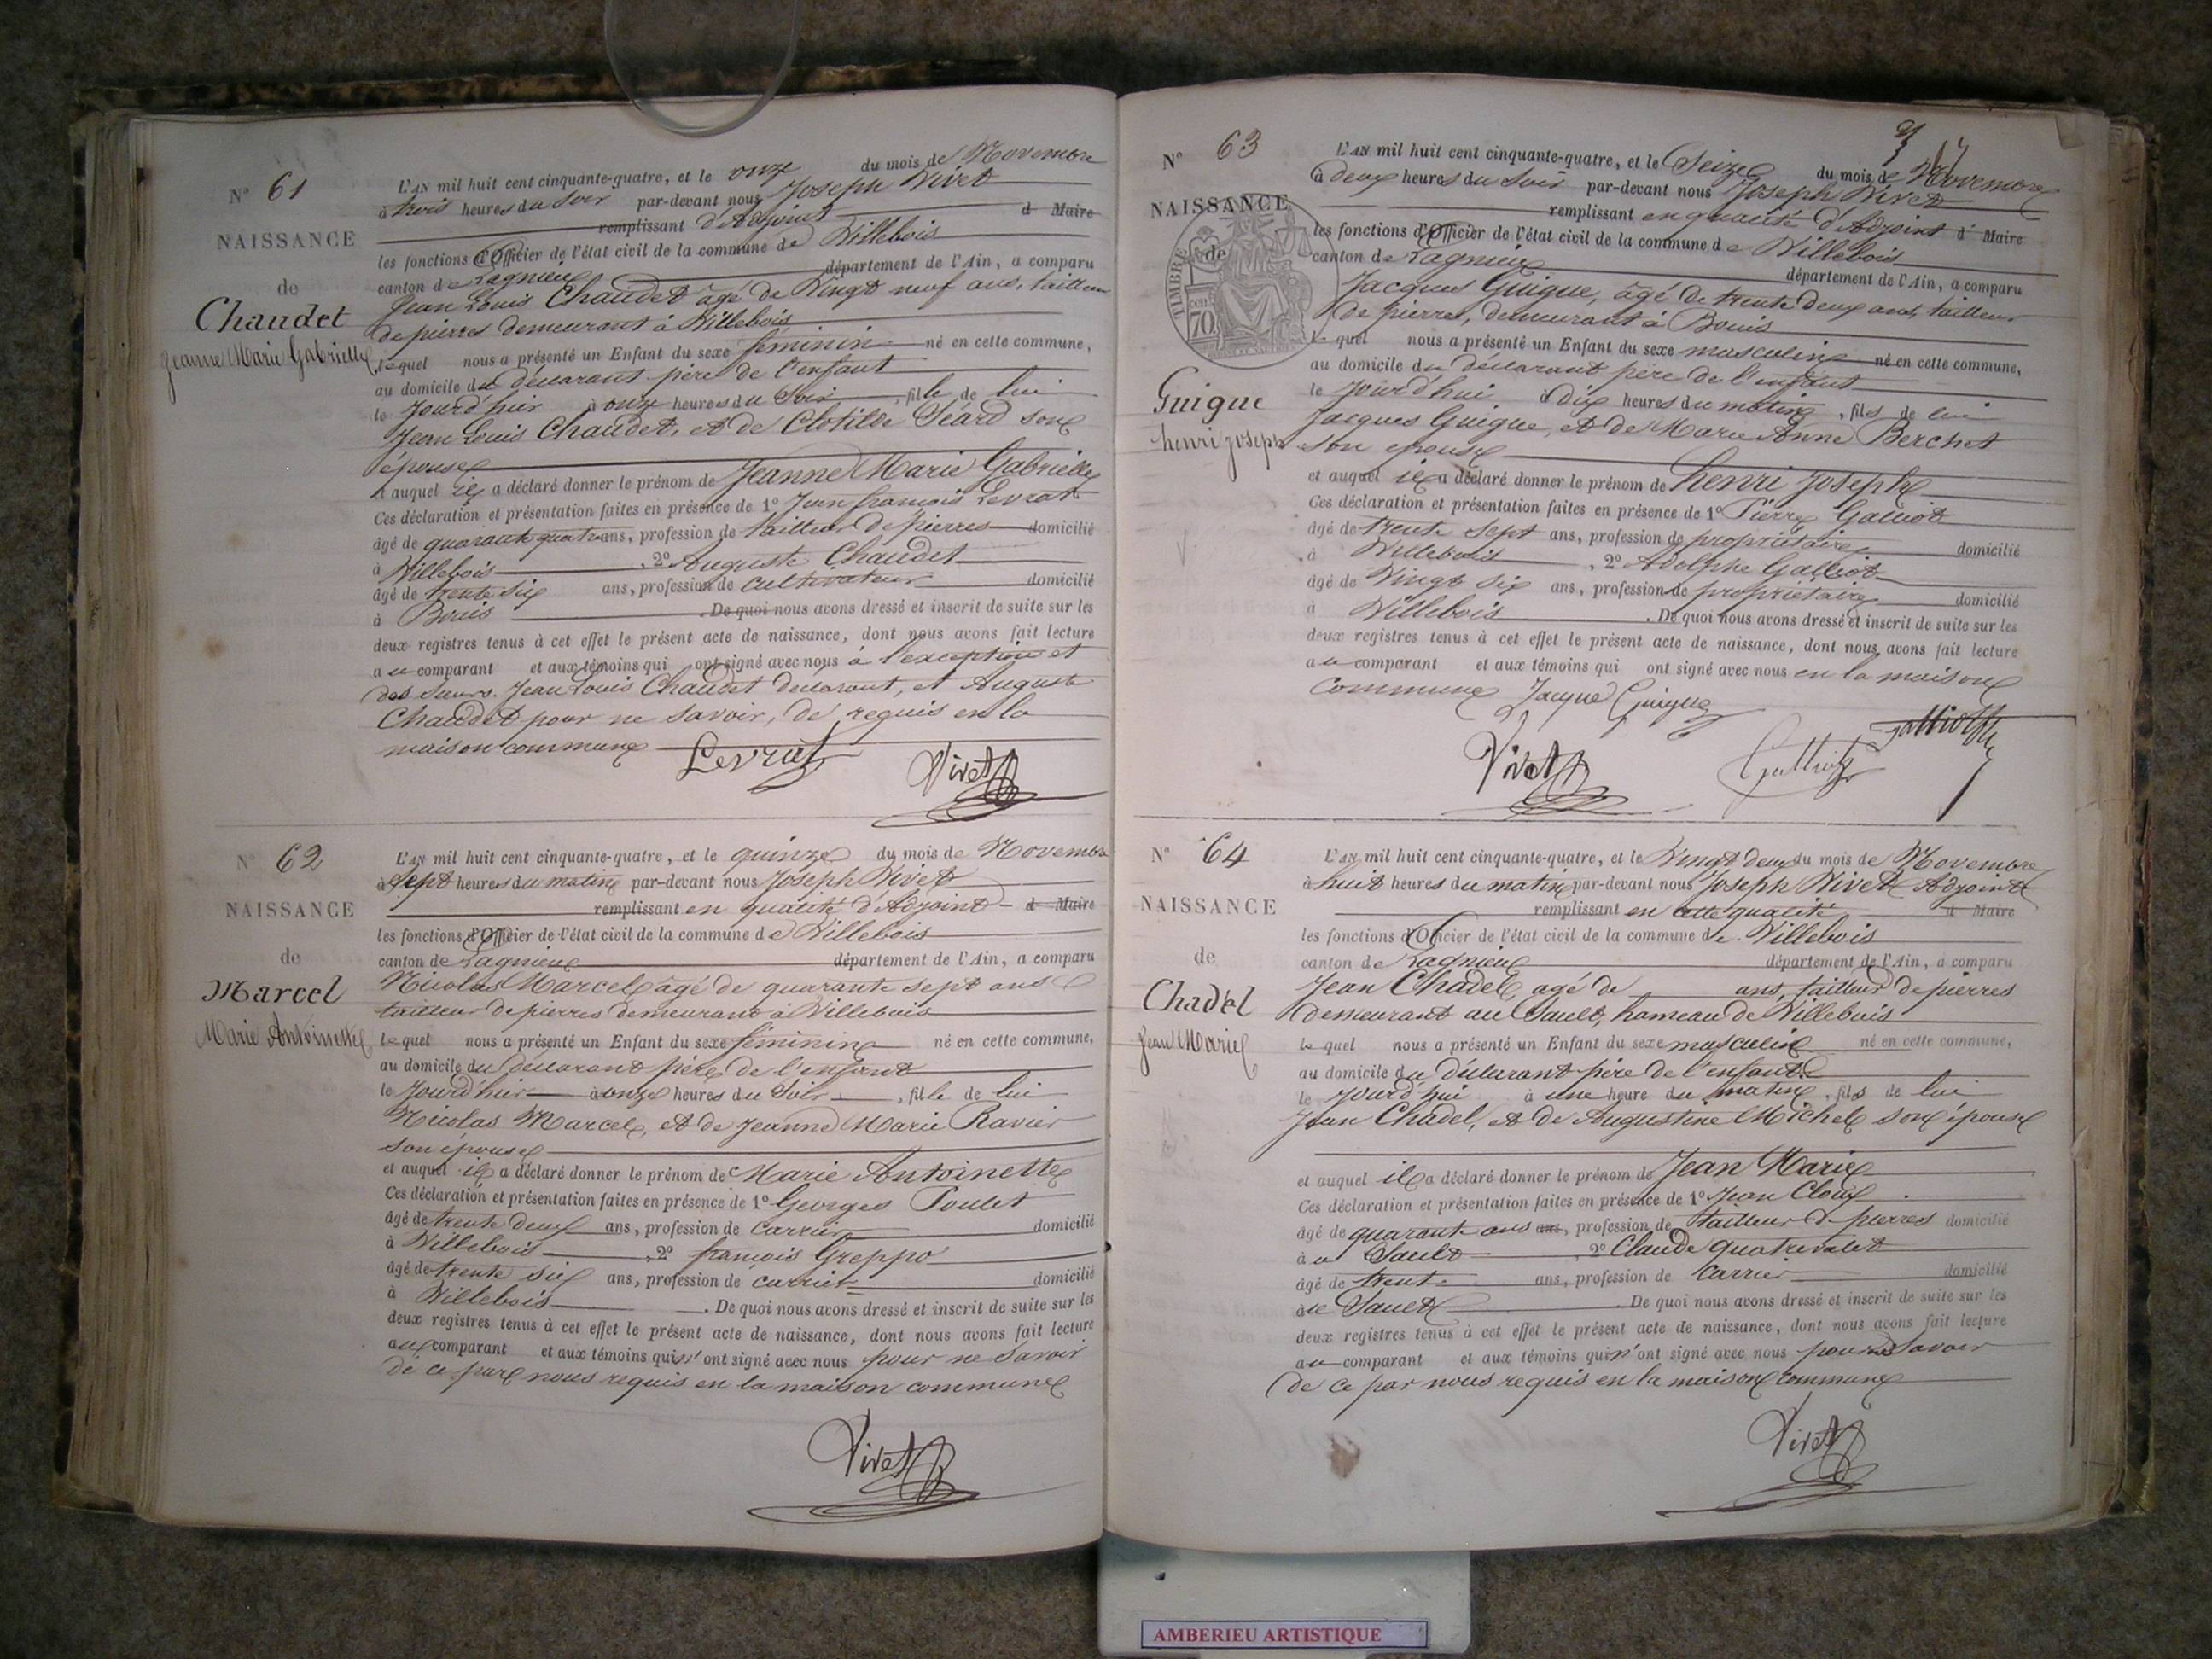 N° 61
NAISSANCE
de
Chaudet
Jeanne Marie Gabrielle
L'AN mil huit cent cinquante-quatre, et le onze du mois de Novembre
à trois heures du Soir par-devant nous Joseph Vivet
remplissant d'Adjoint d Maire
les fonctions d'Officier de l'état civil de la commune de Villebois
canton de Lagnieu département de l'Ain, a comparu
Jean Louis Chaudet âgé de Vingt neuf ans, tailleur
de pierres demeurant à Villebois
lequel nous a présenté un Enfant du sexe féminin né en cette commune,
au domicile du déclarant père de l'enfant
le Jourd'hier à onze heures du Soir, fille de lui
Jean Louis Chaudet, et de Clotilde Séard son
épouse
et auquel il a déclaré donner le prénom de Jeanne Marie Gabrielle
Ces déclaration et présentation faites en présence de 1° Jean françois Levrat
âgé de quarante quatre ans, profession de tailleur de pierres domicilié
à Villebois, 2° Auguste Chaudet
âgé de trente six ans, profession de cultivateur domicilié
à Bouis. De quoi nous avons dressé et inscrit de suite sur les
deux registres tenus à cet effet le présent acte de naissance, dont nous avons fait lecture
au comparant et aux témoins qui ont signé avec nous à l'exception et
des Jean Louis Chaudet déclarant, et Auguste
Chaudet pour ne savoir, de requis en la
maison commune
Levrat Vivet
N° 62
NAISSANCE
de
Marcel
Marie Antoinette
L'AN mil huit cent cinquante-quatre, et le quinze du mois de Novembre
à Sept heures du matin par-devant nous Joseph Vivet
remplissant en qualité d'Adjoint d Maire
les fonctions d'Officier de l'état civil de la commune de Villebois
canton de Lagnieu département de l'Ain, a comparu
Nicolas Marcel âgé de quarante sept ans
tailleur de pierres demeurant à Villebois
lequel nous a présenté un Enfant du sexe féminin né en cette commune,
au domicile du déclarant père de l'enfant
le Jourd'hier à onze heures du Soir, fille de lui
Nicolas Marcel, et de Jeanne Marie Ravier
son épouse
et auquel il a déclaré donner le prénom de Marie Antoinette
Ces déclaration et présentation faites en présence de 1° Georges Poulet
âgé de trente deux ans, profession de Carrier domicilié
à Villebois, 2° françois Greppo
âgé de trente six ans, profession de carrier domicilié
à Villebois. De quoi nous avons dressé et inscrit de suite sur les
deux registres tenus à cet effet le présent acte de naissance, dont nous avons fait lecture
au comparant et aux témoins qui n'ont signé avec nous pour ne Savoir
de ce par nous requis en la maison commune
Vivet
N° 63
NAISSANCE
de
TIMBRE
70
Guigue
henri joseph
L'AN mil huit cent cinquante-quatre, et le Seize du mois de Novembre
à deux heures du Soir par-devant nous Joseph Vivet
remplissant en qualité d'Adjoint d Maire
les fonctions d'Officier de l'état civil de la commune de Villebois
canton de Lagnieu département de l'Ain, a comparu
Jacques Guigue, âgé de trente deux ans, tailleur
de pierres, demeurant à Bouis
lequel nous a présenté un Enfant du sexe masculin né en cette commune,
au domicile du déclarant père de l'enfant
le Jourd'hui à dix heures du matin, fils de lui
Jacques Guigue, et de Marie Anne Berchet
son épouse
et auquel il a déclaré donner le prénom de henri joseph
Ces déclaration et présentation faites en présence de 1° Pierre Galliot
âgé de trente sept ans, profession de propriétaire domicilié
à Villebois, 2° Adolphe Galliot
âgé de Vingt six ans, profession de propriétaire domicilié
à Villebois. De quoi nous avons dressé et inscrit de suite sur les
deux registres tenus à cet effet le présent acte de naissance, dont nous avons fait lecture
au comparant et aux témoins qui ont signé avec nous en la maison
commune Jacque Guigue
Vivet Galliot Galliot
N° 64
NAISSANCE
de
Chadel
Jean Marie
L'AN mil huit cent cinquante-quatre, et le Vingt deux du mois de Novembre
à huit heures du matin par-devant nous Joseph Vivet Adjoint
remplissant en cette qualité d Maire
les fonctions d'Officier de l'état civil de la commune de Villebois
canton de Lagnieu département de l'Ain, a comparu
Jean Chadel, agé de ans, tailleur de pierres
demeurant au Sault, hameau de Villebois
lequel nous a présenté un Enfant du sexe masculin né en cette commune,
au domicile du déclarant père de l'enfant
le Jourd'hui à une heure du matin, fils de lui
Jean Chadel, et de Augustine Michel son épouse
et auquel il a déclaré donner le prénom de Jean Marie
Ces déclaration et présentation faites en présence de 1° Jean
âgé de quarante ans ans, profession de tailleur de pierres domicilié
à u Sault, 2° Claude quatrevalet
âgé de trente ans, profession de Carrier domicilié
au Sault. De quoi nous avons dressé et inscrit de suite sur les
deux registres tenus à cet effet le présent acte de naissance, dont nous avons fait lecture
au comparant et aux témoins qui n'ont signé avec nous pour ne Savoir
de ce par nous requis en la maison commune
Vivet
AMBERIEU ARTISTIQUE